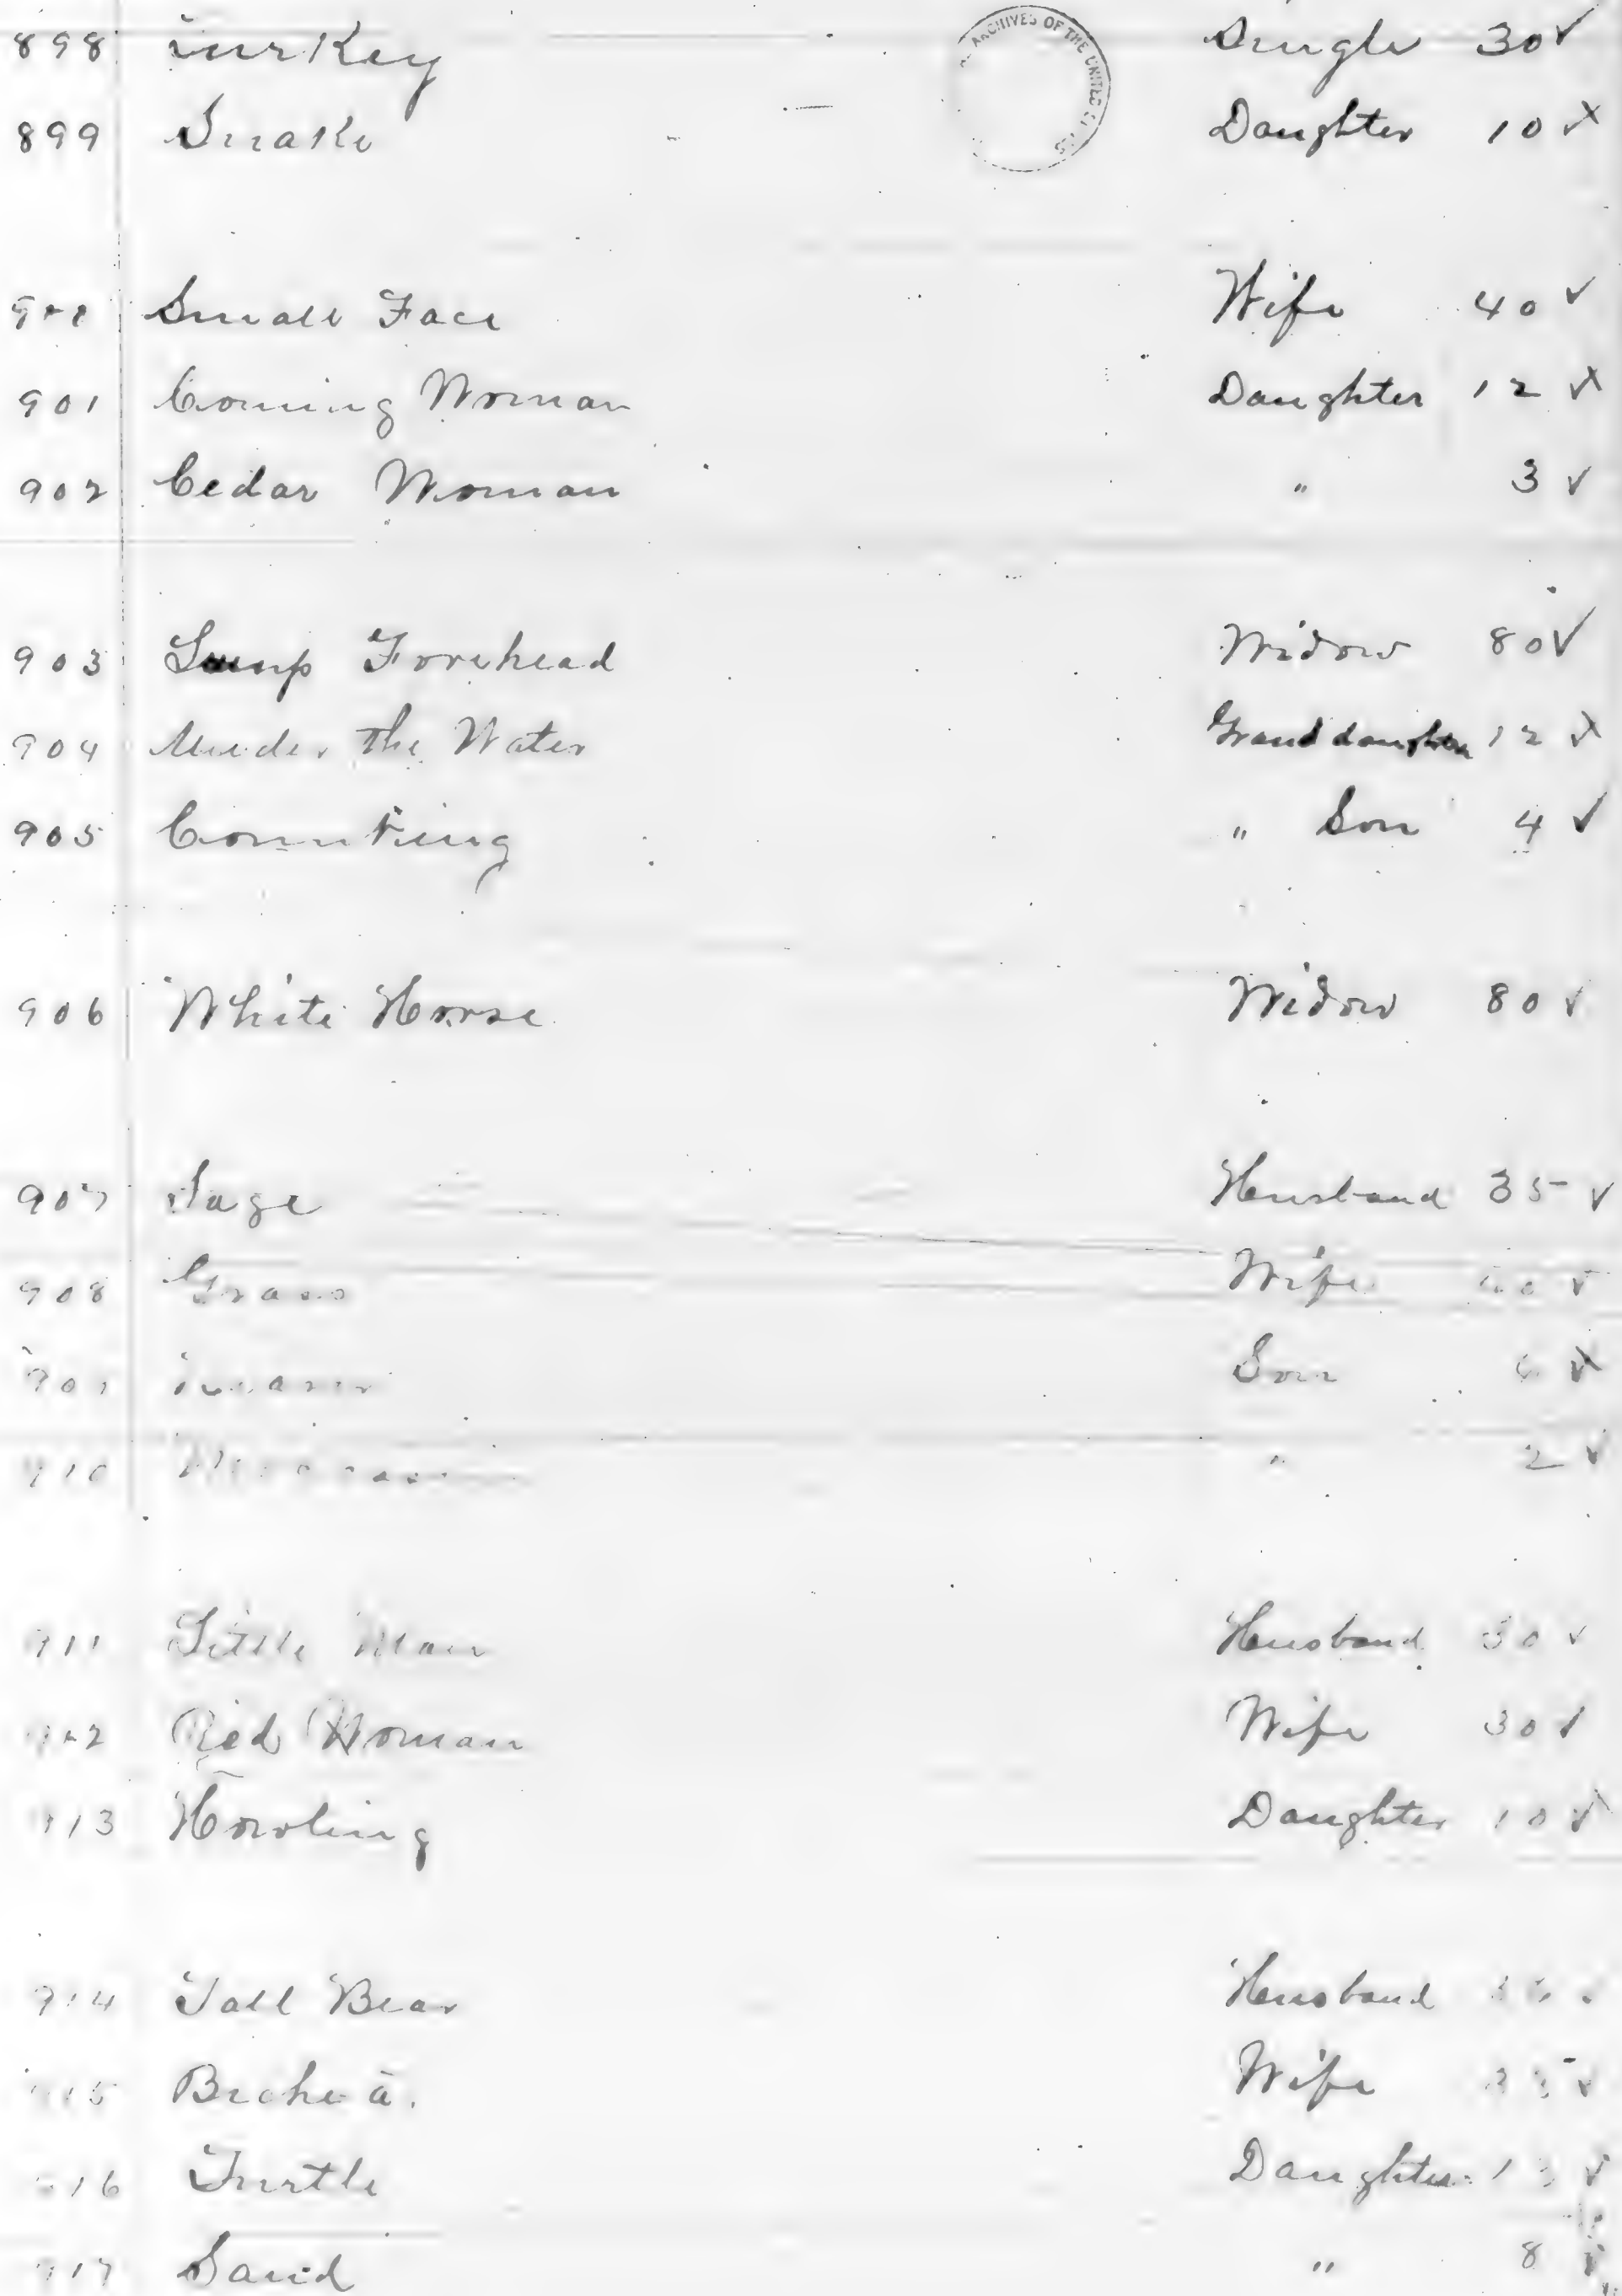 898 Turkey Single 30 ✓
ARCHIVES OF THE UNITED STATES
899 Snake Daughter 10 ✓
Small Face Wife 40 ✓
901 Coming Woman Daughter 12 ✓
902 Cedar Woman " 3 ✓
903 Lump Forehead Widow 80 ✓
904 Under The Water Grand daughter 12 ✓
905 Counting " Son 4 ✓
906 White Horse Widow 80 ✓
907 Sage Husband 35 ✓
908 Grass Wife ✓
Son ✓
910 " 2 ✓
911 Little Man Husband 30 ✓
912 Red Woman Wife 30 ✓
913 Howling Daughter 10 ✓
914 Tall Bear Husband
915 Wife ✓
916 Turtle Daughter ✓
917 Sand " 8